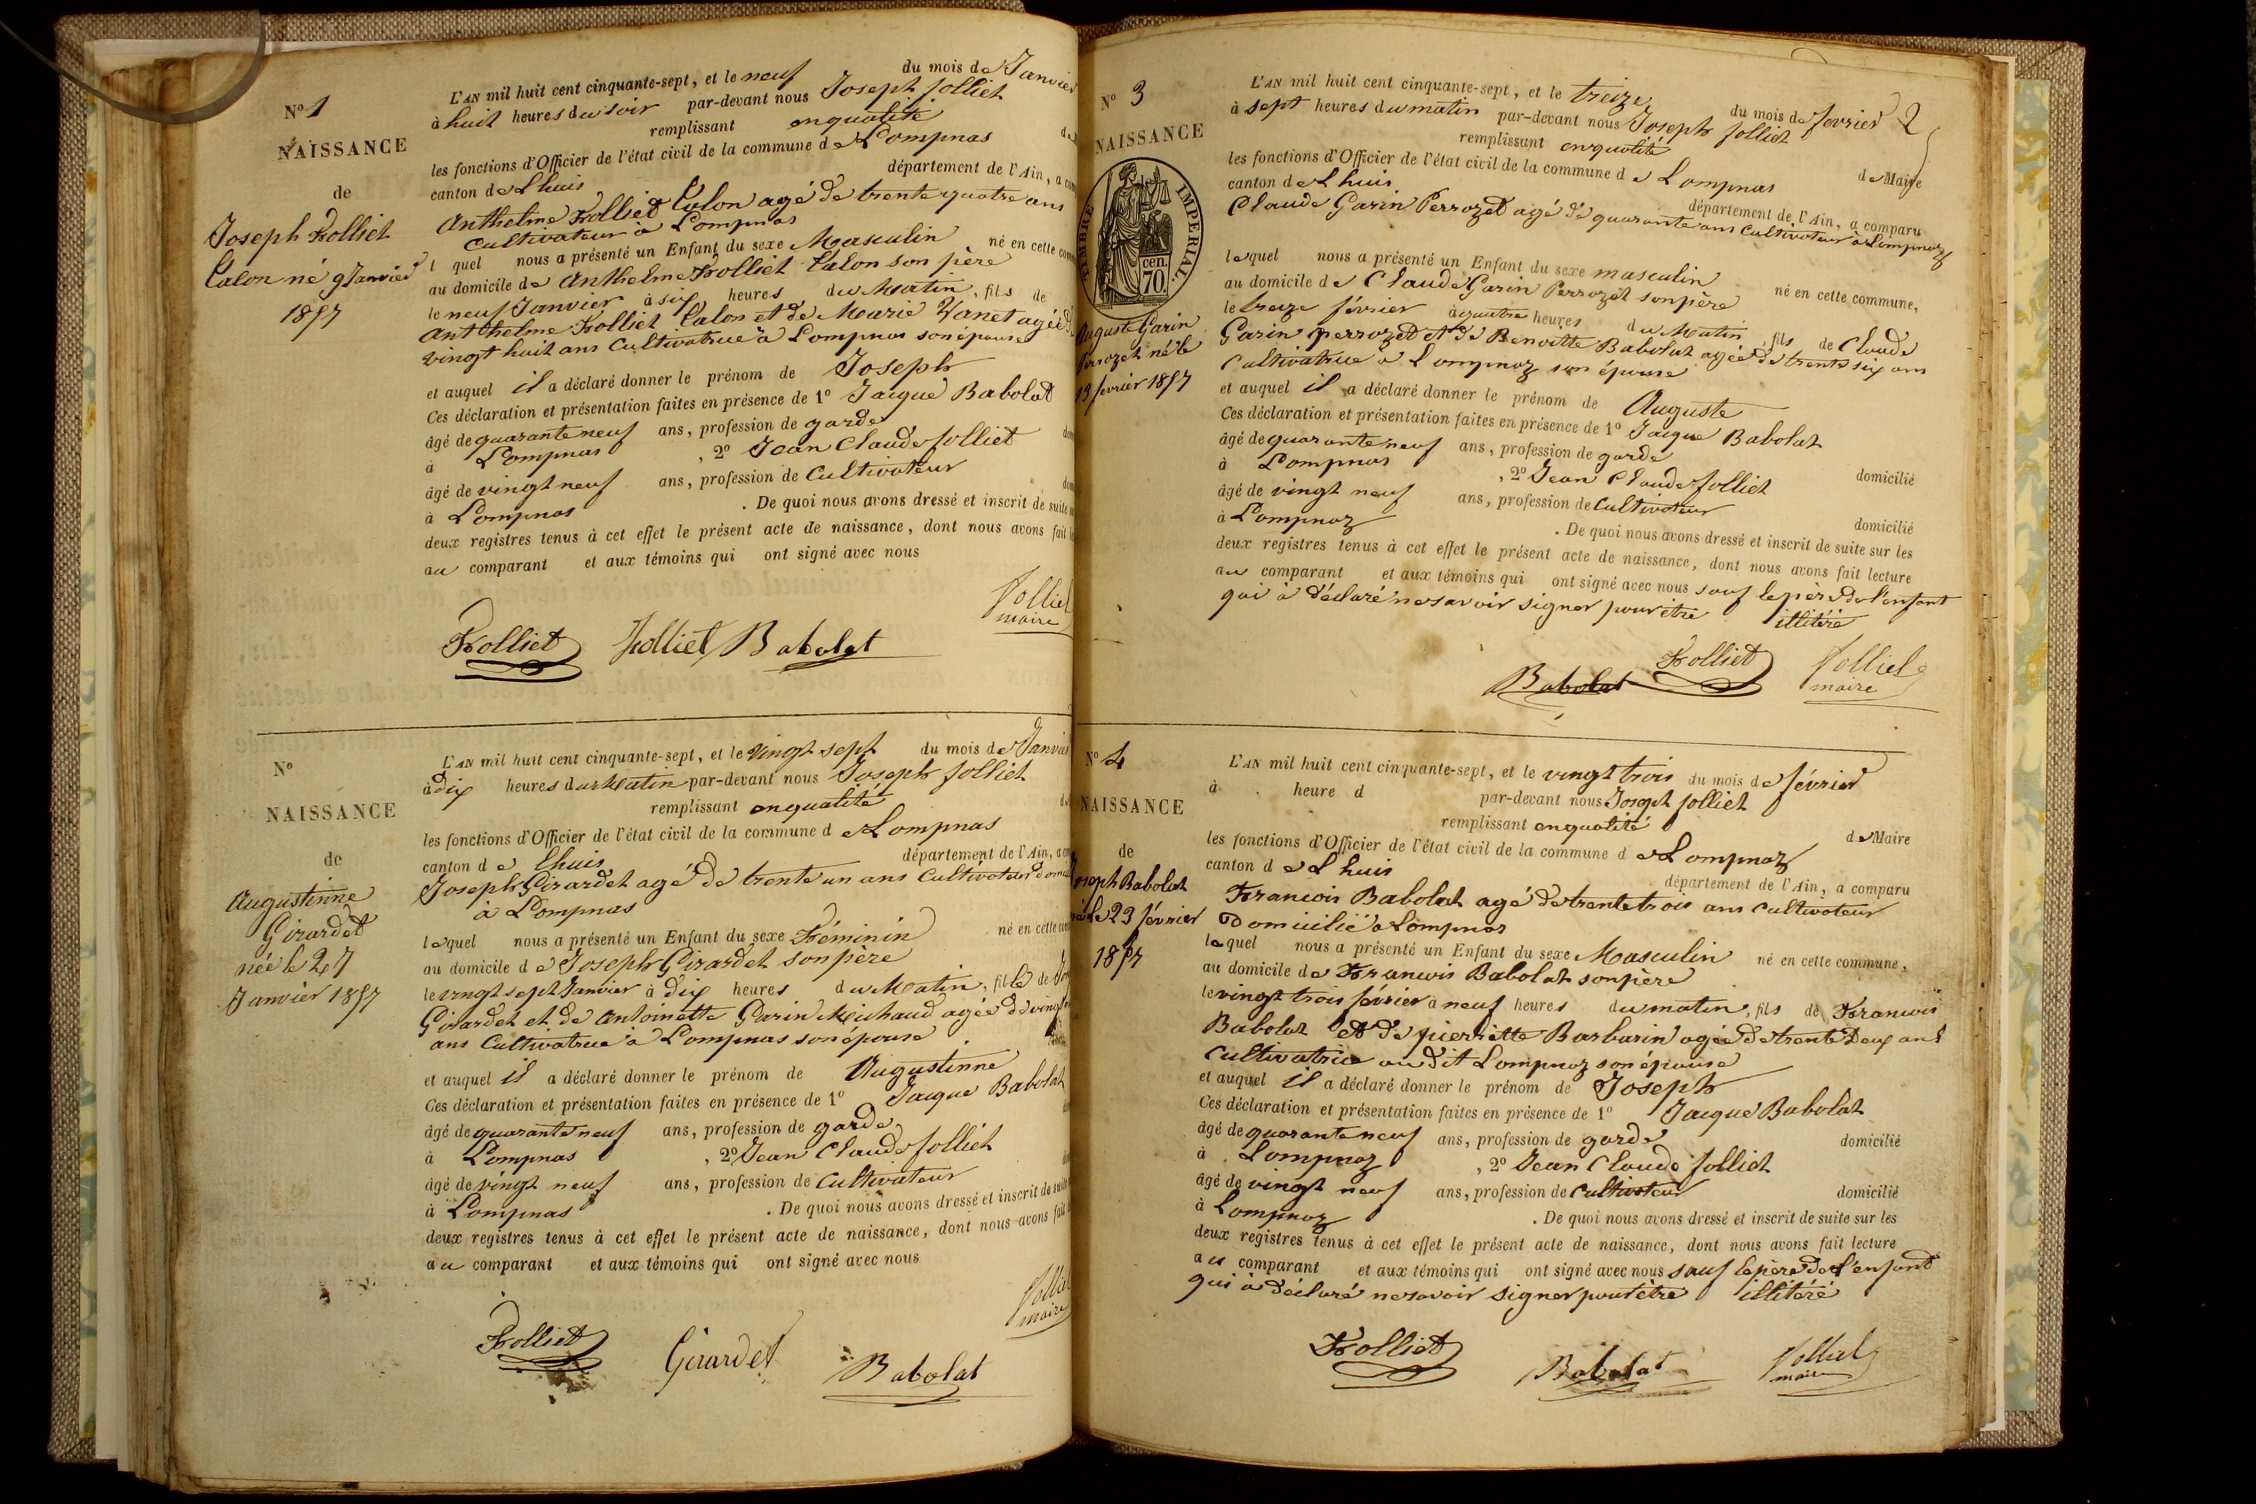 No 1
NAISSANCE
de
Joseph Trolliet
Calon né 9 Janvier
1857
L'AN mil huit cent cinquante-sept, et le neuf du mois de Janvier
à huit heures du soir par-devant nous Joseph Jolliet
remplissant en qualité de
les fonctions d'Officier de l'état civil de la commune de Lompnas
canton de Lhuis département de l'Ain, a
Anthelme Trolliet Calon agé de trente quatre ans
Cultivateur à Lompnas
l quel nous a présenté un Enfant du sexe Masculin né en cette
au domicile de Anthelme Trolliet Calon son père
le neuf Janvier à six heures du Matin, fils de
Anthelme Trolliet Calon et de Marie Vanet agée de
vingt huit ans Cultivatrice à Lompnas son épouse
et auquel il a déclaré donner le prénom de Joseph
Ces déclaration et présentation faites en présence de 1o Jacque Babolat
âgé de quarante neuf ans, profession de garde
à Lompnas, 2o Jean Claude Jolliet
âgé de vingt neuf ans, profession de Cultivateur
à Lompnas. De quoi nous avons dressé et inscrit de suite
deux registres tenus à cet effet le présent acte de naissance, dont nous avons fait
au comparant et aux témoins qui ont signé avec nous
Jolliet
maire
Trolliet Jolliet Babolat
No
NAISSANCE
de
Augustinne
Girardet
née le 27
Janvier 1857
L'AN mil huit cent cinquante-sept, et le vingt sept du mois de Janvier
à dix heures du Matin par-devant nous Joseph Jolliet
remplissant en qualité
les fonctions d'Officier de l'état civil de la commune de Lompnas
canton de Lhuis département de l'Ain, a
Joseph Girardet agé de trente un ans Cultivateur
à Lompnas
lequel nous a présenté un Enfant du sexe Féminin né en cette
au domicile de Joseph Girardet son père
le vingt sept Janvier à dix heures du Matin, fille de
Girardet et de Antoinette Garin Michaud agée de vingt
ans Cultivatrice à Lompnas son épouse
et auquel il a déclaré donner le prénom de Augustinne
Ces déclaration et présentation faites en présence de 1o Jacque Babolat
âgé de quarante neuf ans, profession de garde
à Lompnas, 2o Jean Claude Jolliet
âgé de vingt neuf ans, profession de Cultivateur
à Lompnas. De quoi nous avons dressé et inscrit de suite
deux registres tenus à cet effet le présent acte de naissance, dont nous avons fait
au comparant et aux témoins qui ont signé avec nous
Jolliet
maire
Trolliet Girardet Babolat
2
No 3
NAISSANCE
TIMBRE IMPERIAL.
70 cen.
Auguste Garin
Perrozet né le
13 février 1857
L'AN mil huit cent cinquante-sept, et le treize du mois de février
à sept heures du matin par-devant nous Joseph Jolliet
remplissant en qualité de Maire
les fonctions d'Officier de l'état civil de la commune de Lompnas
canton de Lhuis département de l'Ain, a comparu
Claude Garin Perrozet agé de quarante ans Cultivateur à Lompnaz
lequel nous a présenté un Enfant du sexe masculin né en cette commune,
au domicile de Claude Garin Perrozet son père
le treize février à quatre heures du Matin, fils de Claude
Garin Perrozet et de Benoitte Babolat agée de trente six ans
Cultivatrice à Lompnaz son épouse
et auquel il a déclaré donner le prénom de Auguste
Ces déclaration et présentation faites en présence de 1o Jacque Babolat
âgé de quarante neuf ans, profession de garde domicilié
à Lompnas, 2o Jean Claude Jolliet
âgé de vingt neuf ans, profession de Cultivateur domicilié
à Lompnaz. De quoi nous avons dressé et inscrit de suite sur les
deux registres tenus à cet effet le présent acte de naissance, dont nous avons fait lecture
au comparant et aux témoins qui ont signé avec nous sauf le père de l'enfant
qui à déclaré ne savoir signer pour être illitéré
Babolat Trolliet Jolliet
maire
No 4
NAISSANCE
de
Joseph Babolat
né le 23 février
1857
L'AN mil huit cent cinquante-sept, et le vingt trois du mois de février
à heure d par-devant nous Joseph Jolliet
remplissant en qualité de Maire
les fonctions d'Officier de l'état civil de la commune de Lompnaz
canton de Lhuis département de l'Ain, a comparu
Francois Babolat agé de trente trois ans cultivateur
Domicilié à Lompnas
lequel nous a présenté un Enfant du sexe Masculin né en cette commune,
au domicile de Francois Babolat son père
le vingt trois février à neuf heures du matin, fils de Francois
Babolat et de pierrette Barbarin agée de trente Deux ans
Cultivatrice au dit Lompnaz son épouse
et auquel il a déclaré donner le prénom de Joseph
Ces déclaration et présentation faites en présence de 1o Jacque Babolat
âgé de quarante neuf ans, profession de garde domicilié
à Lompnaz, 2o Jean Claude Jolliet
âgé de vingt neuf ans, profession de Cultivateur domicilié
à Lompnaz. De quoi nous avons dressé et inscrit de suite sur les
deux registres tenus à cet effet le présent acte de naissance, dont nous avons fait lecture
au comparant et aux témoins qui ont signé avec nous sauf le père de l'enfant
qui à déclaré ne savoir signer pour être illitéré
Trolliet Babolat Jolliet
maire